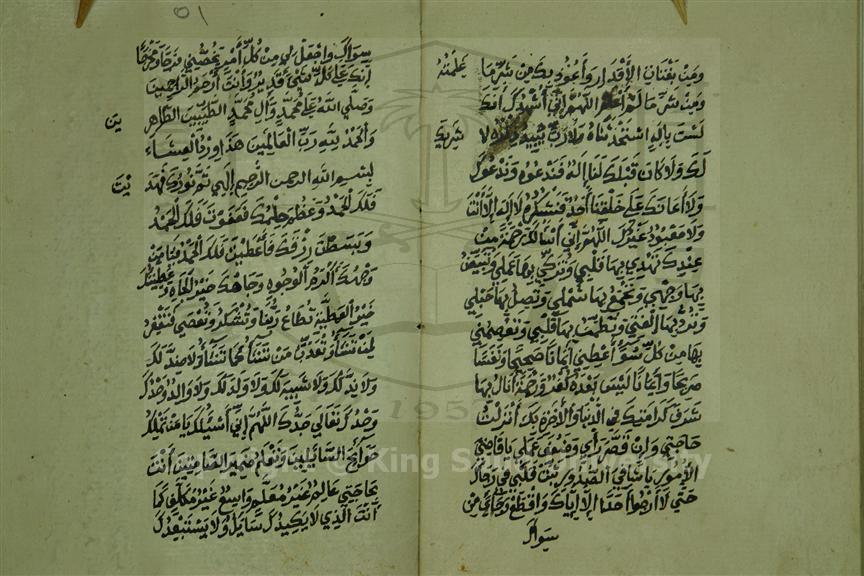 ومن بغتات الأقدار وأعوذ بك من شر ما علمته
ومن شر ما لم أعلم اللهم إني أشهدك أنك
لست بإله استحدثناه ولا رب شريك
لك ولا كان قبلك لنا إله فندعوه وندعوك
ولا أعانك على خلقنا أحد فنشكره لا إله إلا أنت
ولا معبود غيرك اللهم إني أسألك رحمة من
عندك تهدي بها قلبي وتزكي بها عملي وتبيض
بها وجهي وتجمع بها شملي وتصل بها حبلي
وترد بها ألفتي وتطهر بها قلبي وتعصمني
بها من كل سوء أعطني إيمانا صحيحا ونفسا
وإيمانا ليس بعده كفر ورحمة أنال بها
شرف كرامتك في الدنيا والآخرة بك أنزلت
حاجتي وإن قصر رأيي وضعف عملي يا قاضي
الأمور يا شافي الصدور ثبت قلبي في رجاك
حتى لا أرجو أحدا إلا إياك واقطع رجائي من
سواك
٥١
سواك واجعل لي من كل أمر يخصني فرجا ومخرجا
إنك على كل شيء قدير وأنت أرحم الراحمين
وصلى الله على محمد وآل محمد الطيبين الطاهرين
والحمد لله رب العالمين هذا ورد العشاء
بسم الله الرحمن الرحيم إلهي تم نورك فهديت
فلك الحمد وعظم حلمك فعفوت فلك الحمد
وبسطت رزقك فأعطيت فلك الحمد
وجهك أكرم الوجوه وجاهك خير الجاه وعطيتك
خير العطية تطاع ربنا وتشكر وتعصى فتغفر
لمن تشاء وتعذب من تشاء كما تشاء ولا ضد لك
ولا ند لك ولا شبيه لك ولا ولد لك ولا والد وحدك
وحدك تعالى جدك اللهم إني أسئلك يا من تملك
حوائج السائلين وتعلم ضمير الصامتين أنت
بحاجتي عالم غير معلم واسع غير متكلف كما
أنت الذي لا يكيدك سايل ولا يستبعدك
King Saud University
1957